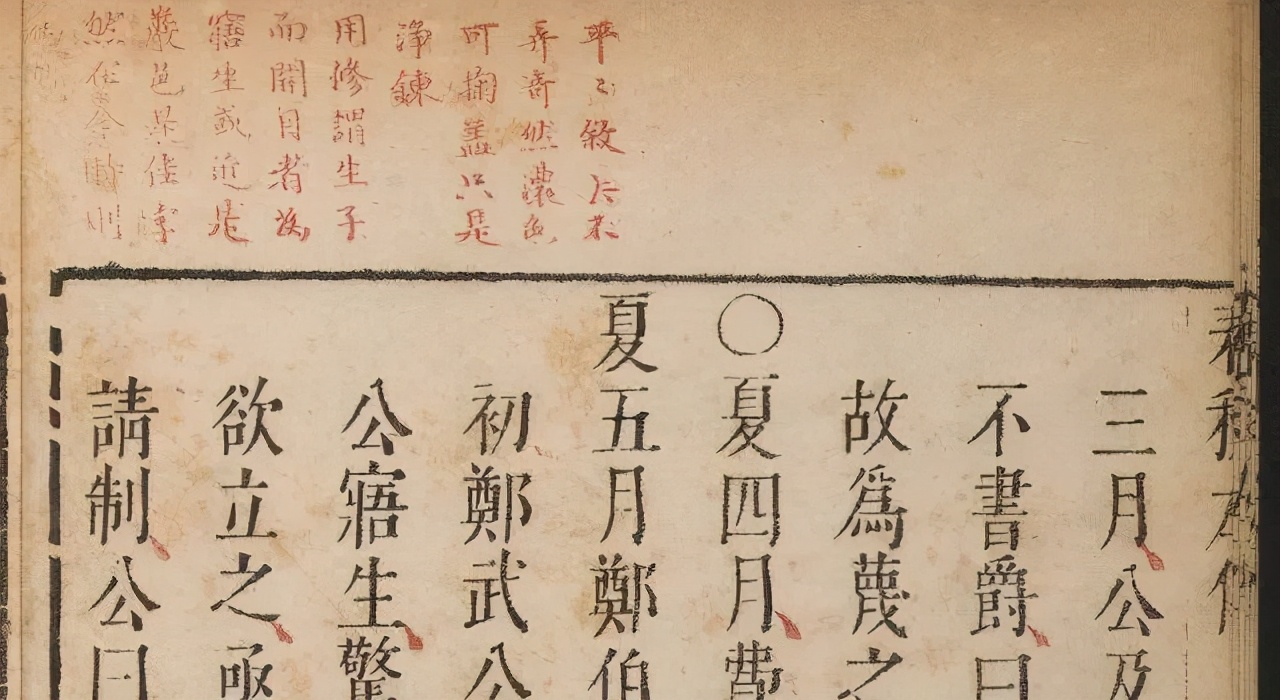 敘
弄奇然濃色
可掬蓋只是
淨鍊
用修謂生子
而開目者為
寤生或近是
嚴邑是佳字
然在今時則
春秋左傳
三月公及
不書爵曰
故爲蔑之
○夏四月費
夏五月鄭伯
初鄭武公
公寤生驚
欲立之亟
請制公曰